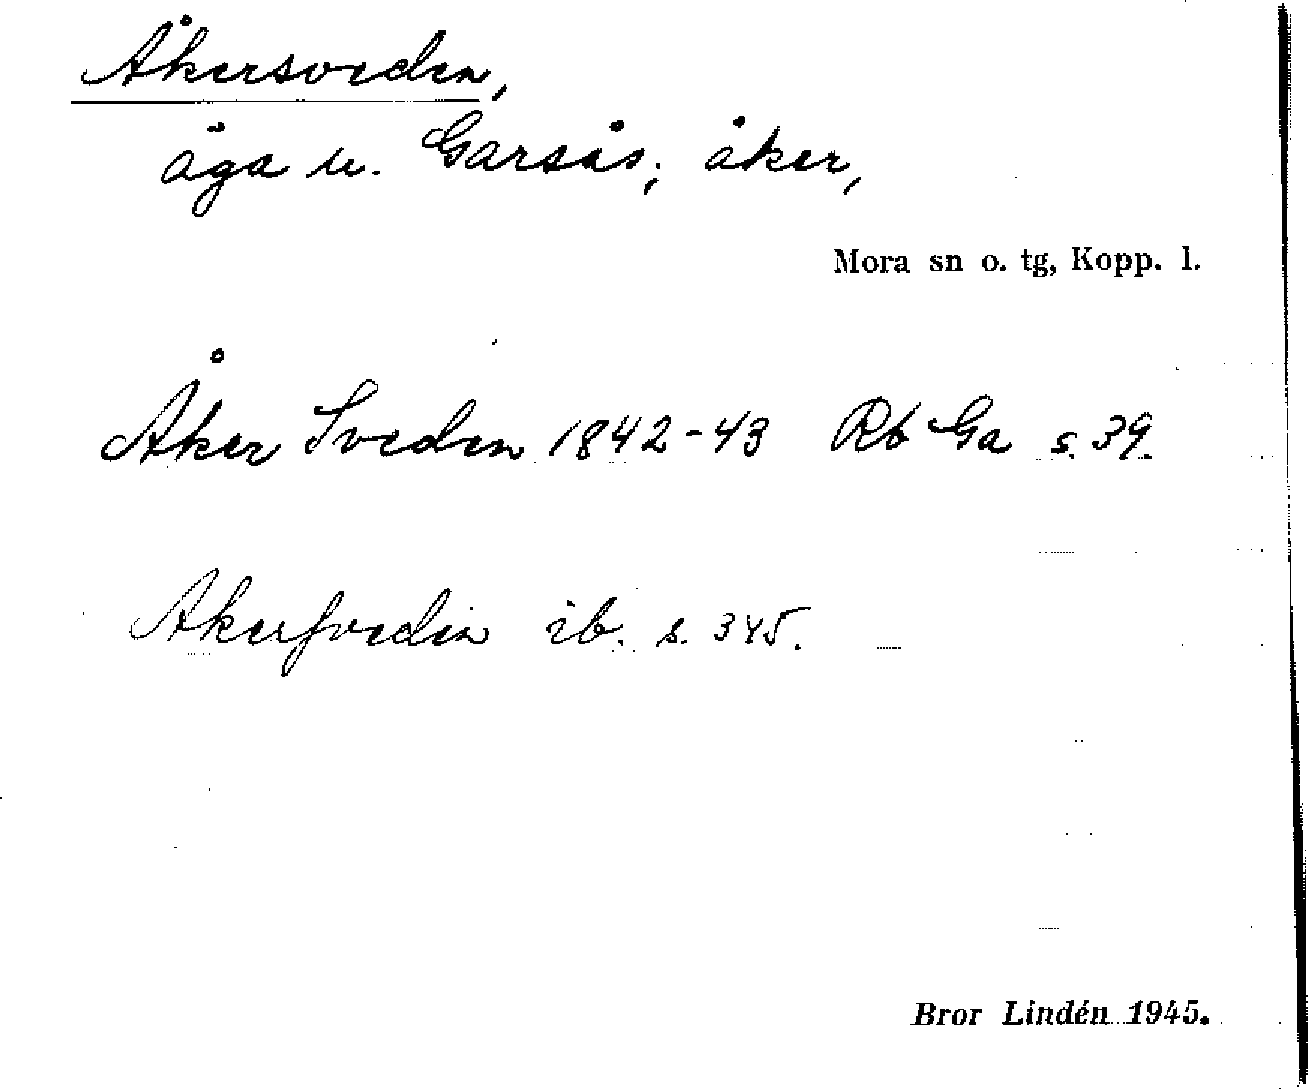 Åkersveden,
äga u. Garsås; åker,
Mora sn o. tg, Kopp. l.
Åker Sveden 1842-43 Rb Ga s. 39.
Akerſveden ib. s. 345.
Bror Lindén 1945.